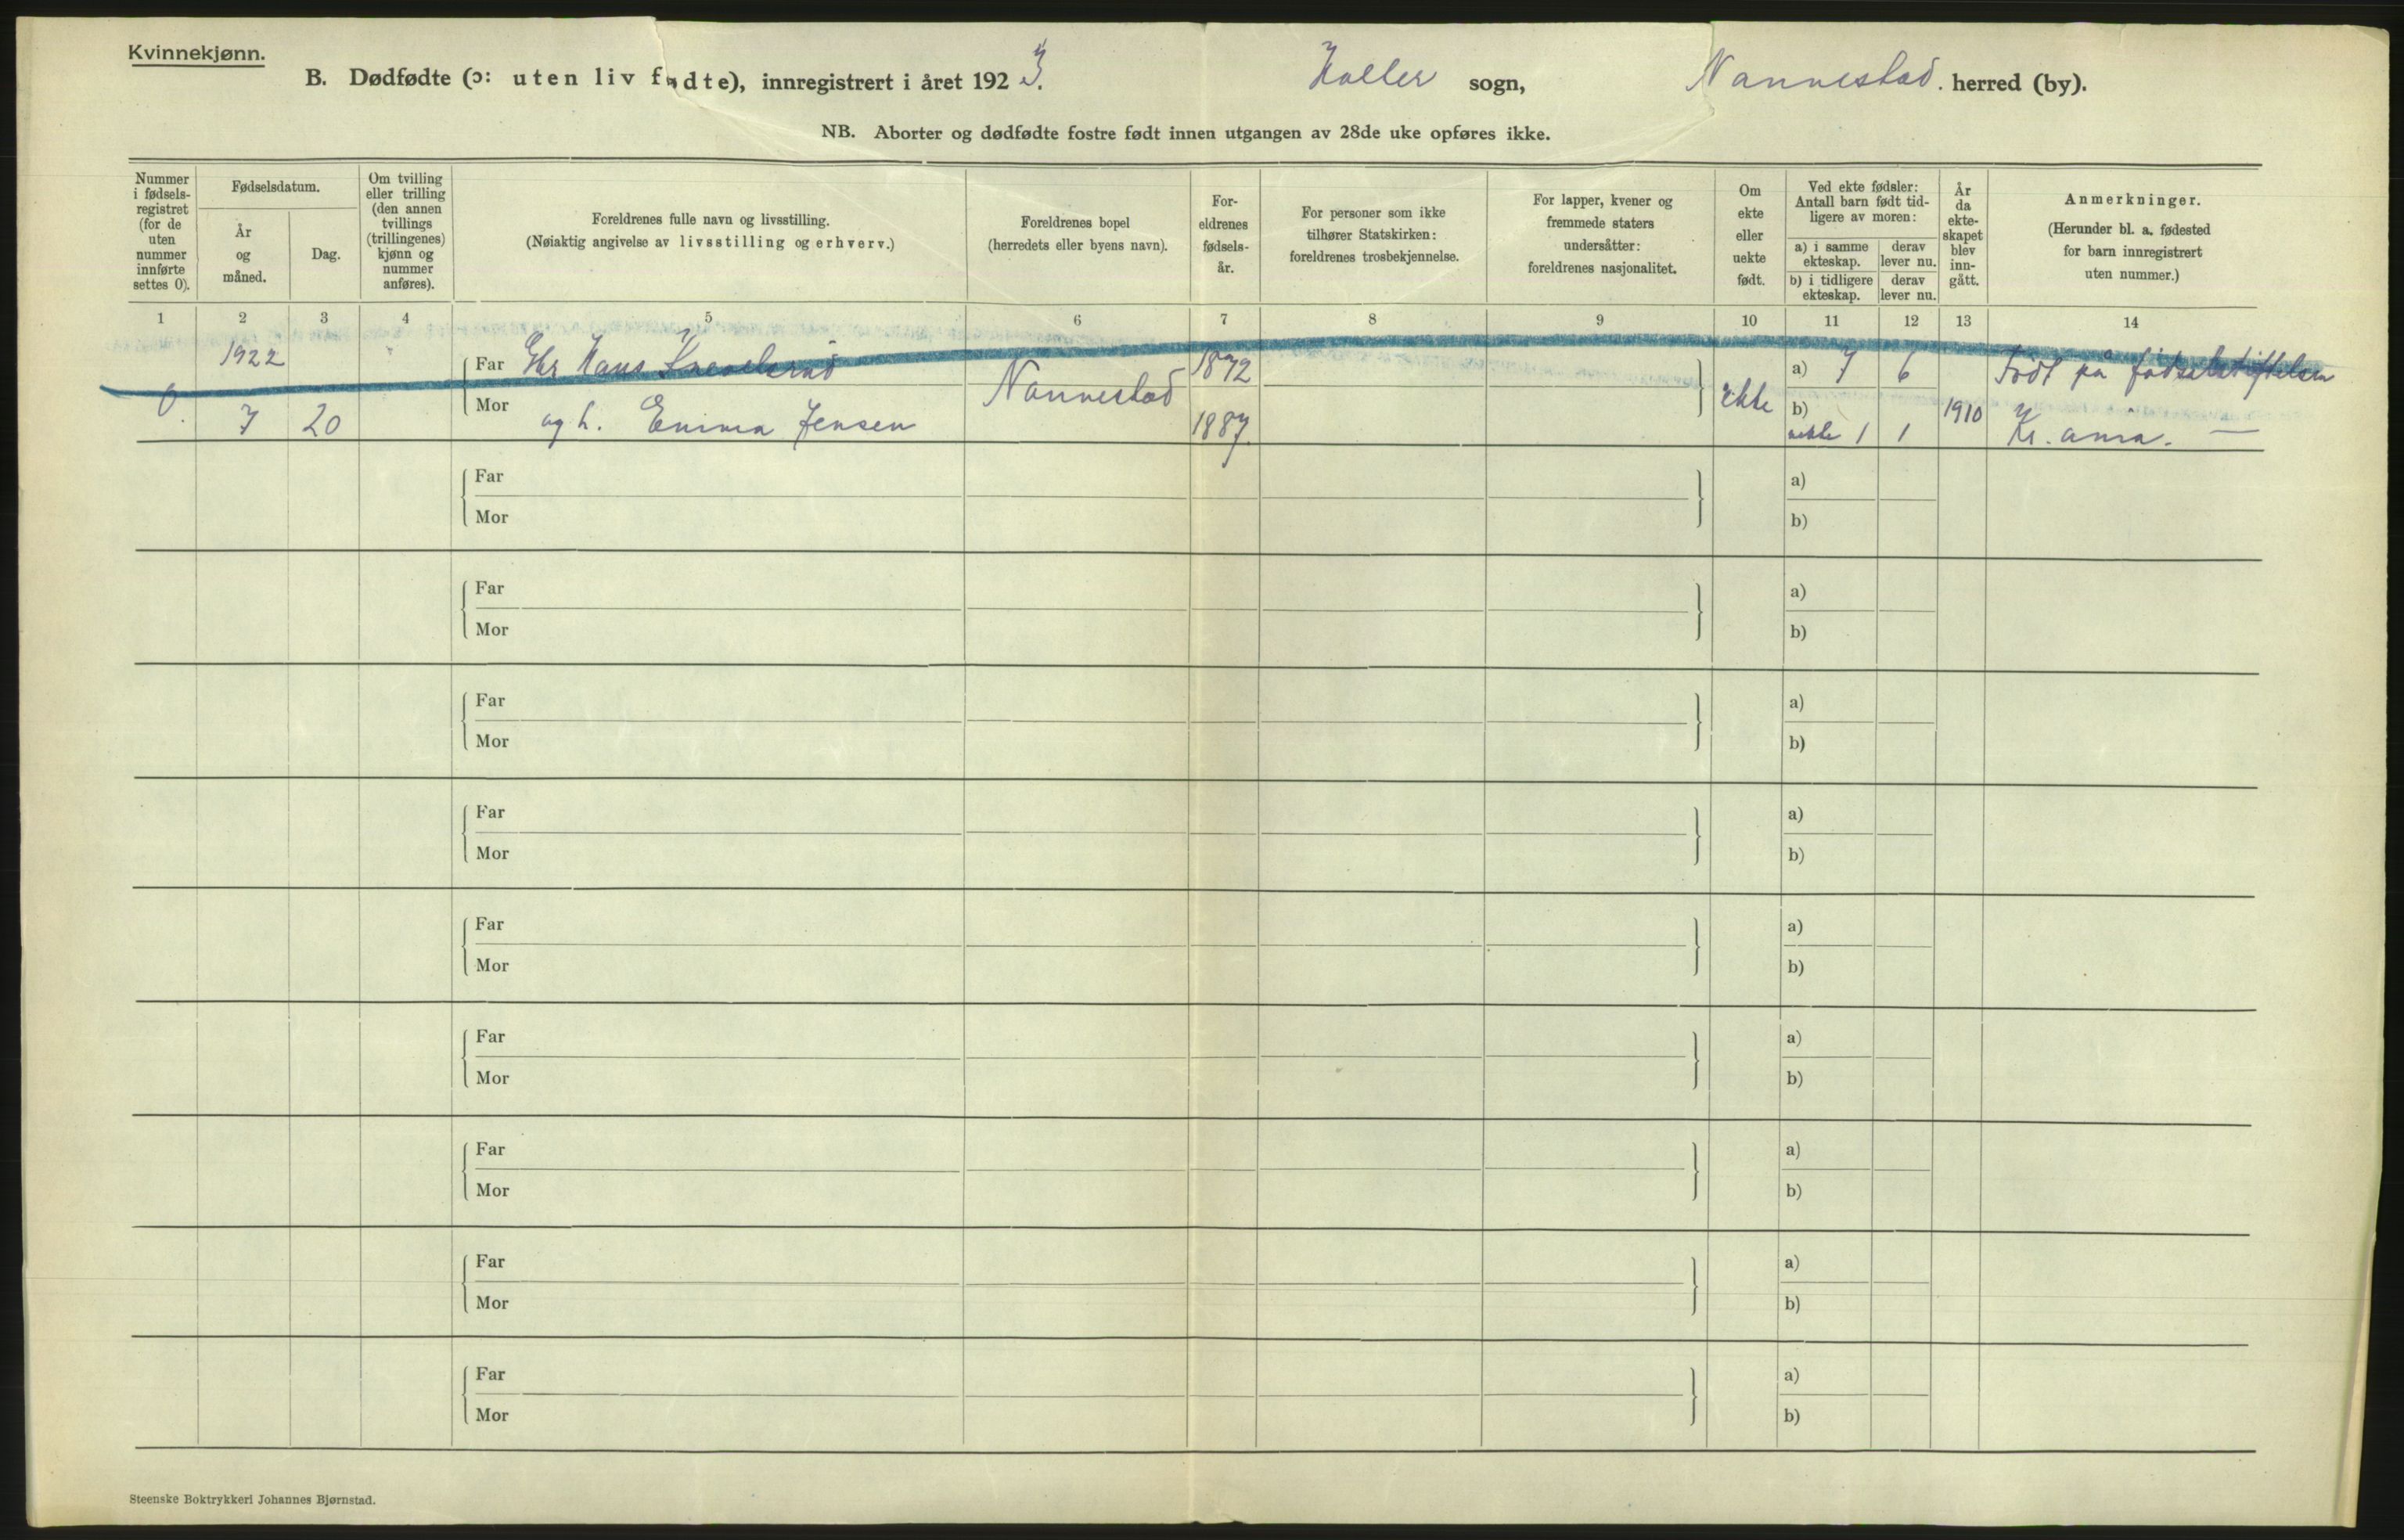 Kvinnekjønn.
B. Dødfødte (ɔ: uten liv fødte), innregistrert i året 1923. Holter sogn, Nannestad. herred (by).
NB. Aborter og dødfødte fostre født innen utgangen av 28de uke opføres ikke.
Nummer i fødsels-registret (for de uten nummer innførte settes 0).
Fødselsdatum.
År og måned.
Dag.
Om tvilling eller trilling (den annen tvillings (trillingenes) kjønn og nummer anføres).
Foreldrenes fulle navn og livsstilling.
(Nøiaktig angivelse av livsstilling og erhverv.)
Foreldrenes bopel
(herredets eller byens navn).
For-eldrenes fødsels-år.
For personer som ikke tilhører Statskirken: foreldrenes trosbekjennelse.
For lapper, kvener og fremmede staters undersåtter: foreldrenes nasjonalitet.
Om ekte eller uekte født.
Ved ekte fødsler: Antall barn født tid-ligere av moren:
a) i samme ekteskap.
derav lever nu.
b) i tidligere ekteskap.
derav lever nu.
År da ekte-skapet blev inn-gått.
Anmerkninger.
(Herunder bl. a. fødested for barn innregistrert uten nummer.)
1 2 3 4 5 6 7 8 9 10 11 12 13 14
1922 Far Gbr Hans 1872 a) 7 6 Født på fødselstiftelsen
0. 7 20 Mor og h. Emma Jensen Nannestad 1887 ekte b) uekte 1 1 1910 Kr.ania. —
Far a)
Mor b)
Far a)
Mor b)
Far a)
Mor b)
Far a)
Mor b)
Far a)
Mor b)
Far a)
Mor b)
Far a)
Mor b)
Far a)
Mor b)
Far a)
Mor b)
Steenske Boktrykkeri Johannes Bjørnstad.